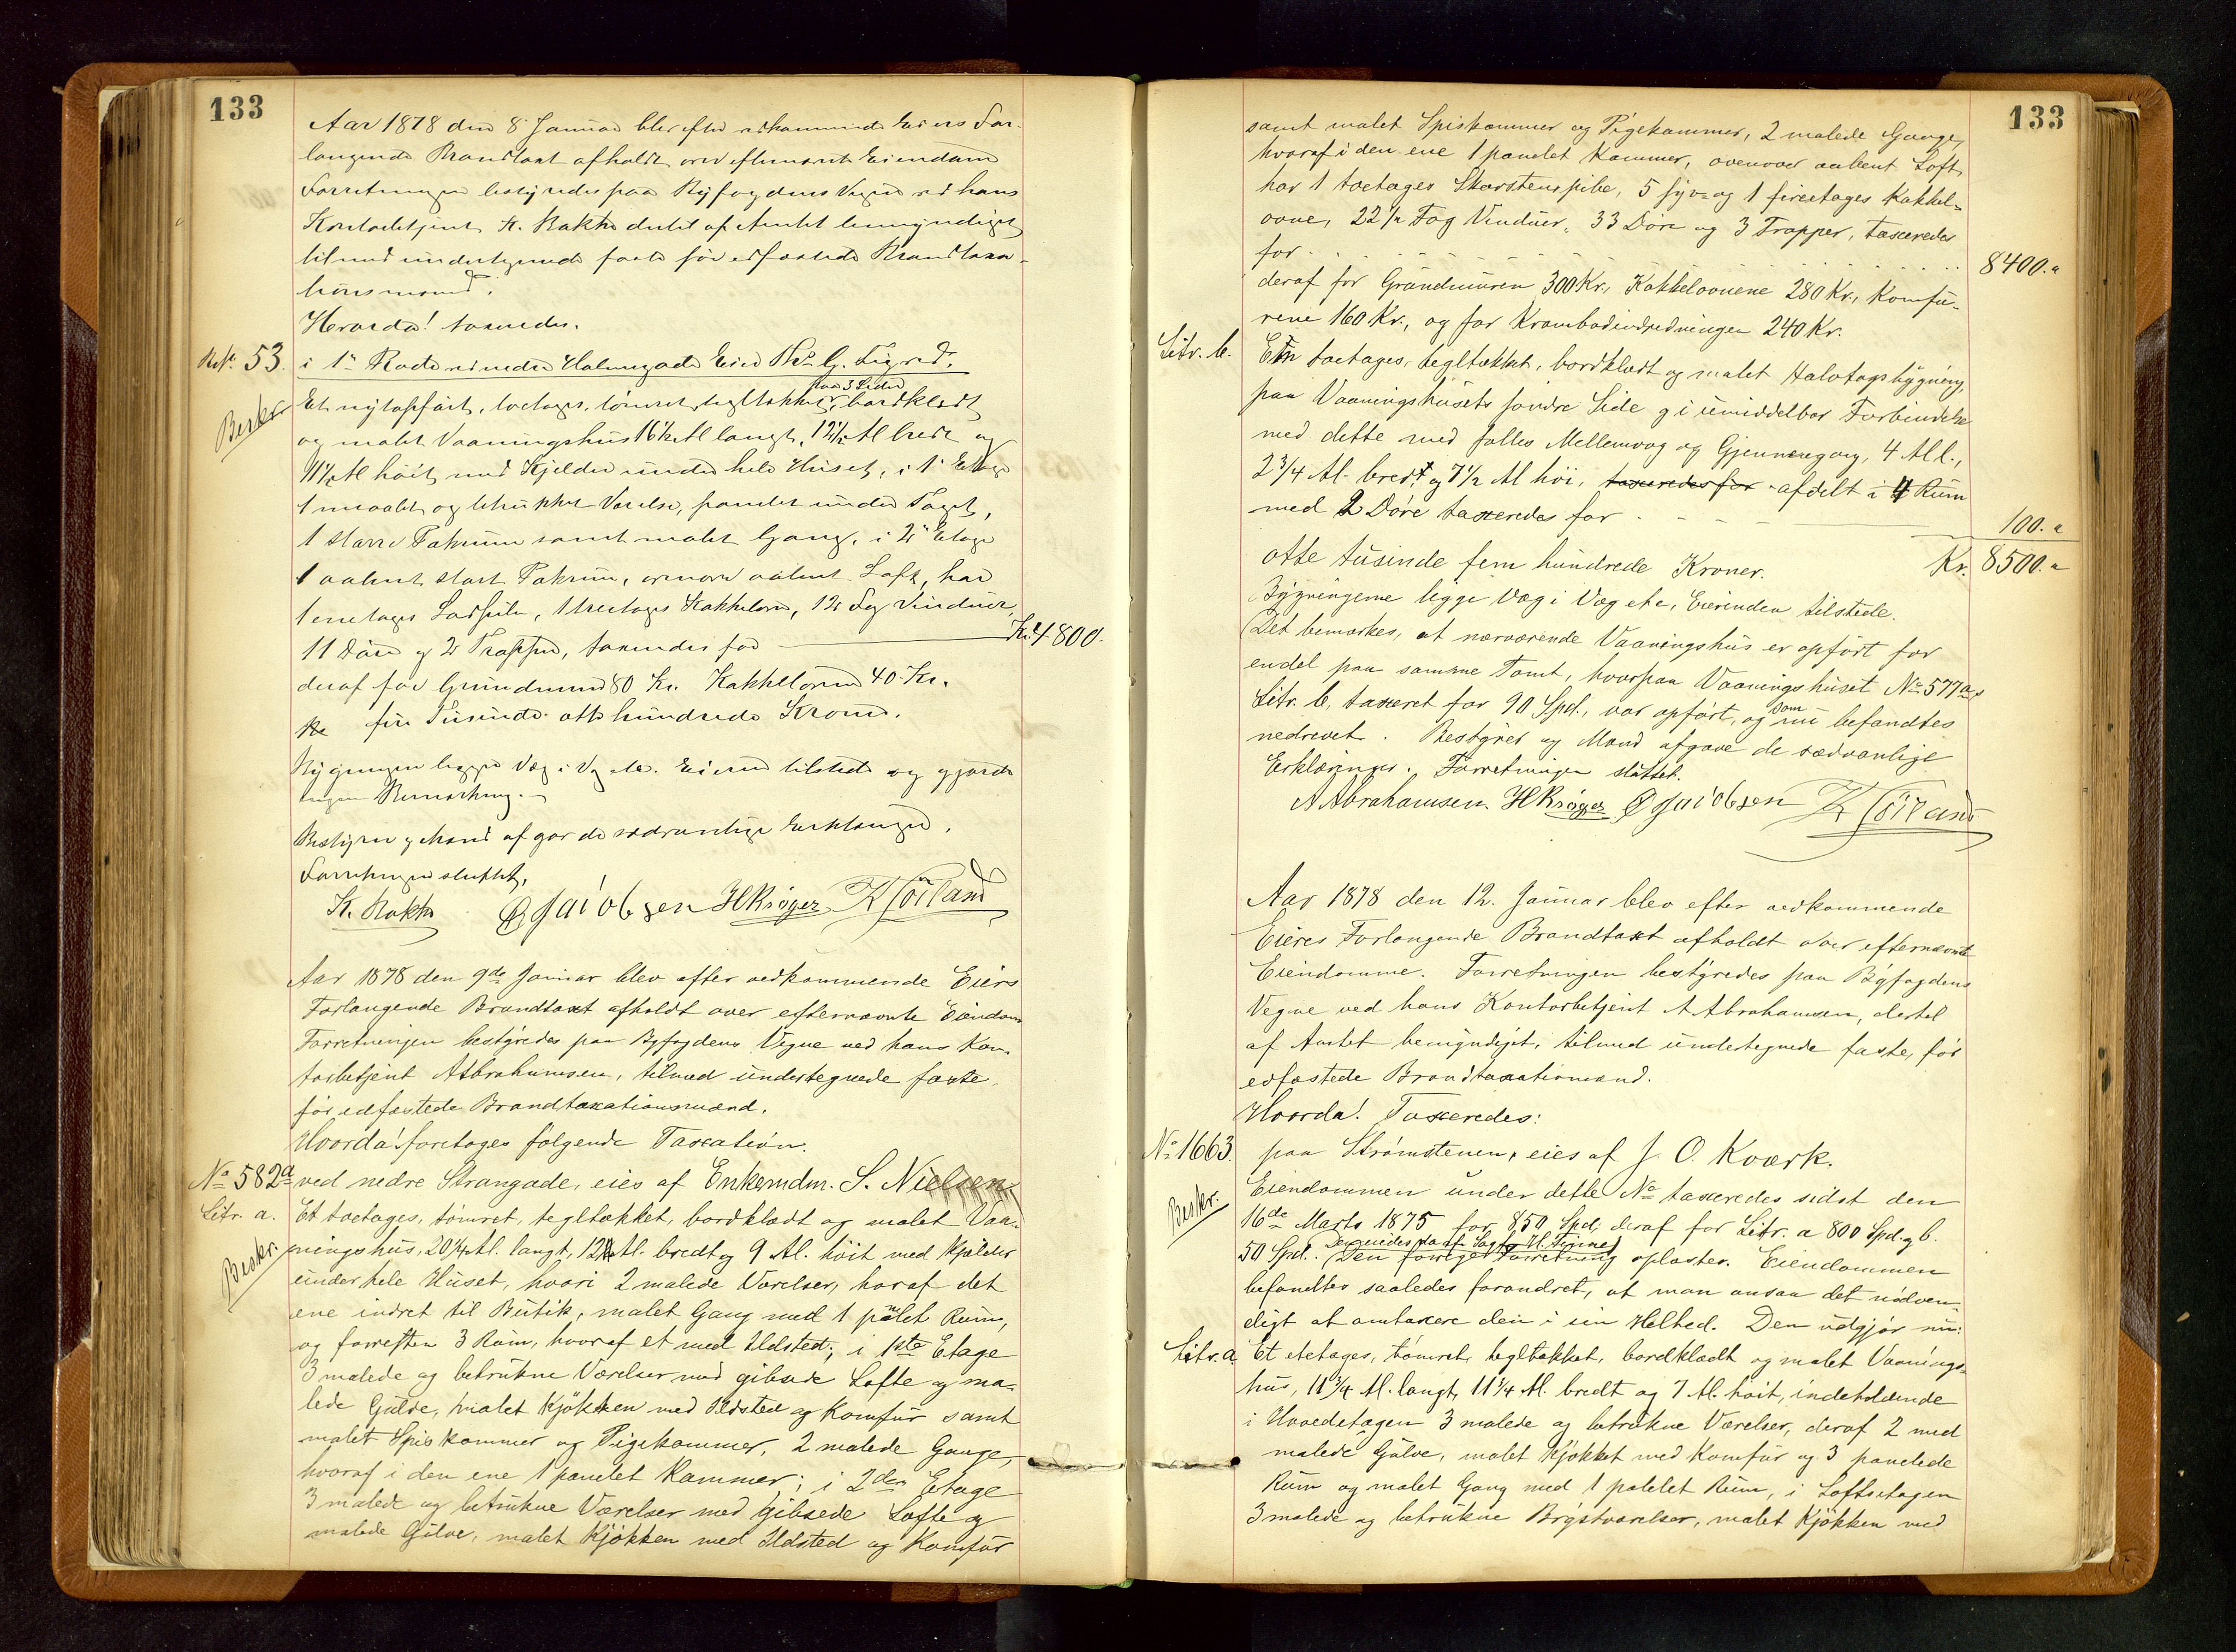 133
Aar 1878 den 8 Januar blev efter vedkommende Eiers For-
langende Brandtaxt afholdt over efternævnte Eiendom
Forretningen bestyredes paa Byfogdens Vegne ved hans
Kontorbetjent K. Bakke dertil af Amtet bemyndiget
tilmed undertegnede faste før edfæstede Brandtaxa-
tionsmænd.
Hvorda! taxeredes.
No 53. i 1ste Rode ved nedre Holmegade Eier
Beskr. Et nyt opført, toetages, tømret, tegltækket, paa 3 Sider bordklædt
og malet Vaaningshus 16 1/2 Al langt, 12 1/2 Al bredt og
11 1/2 Al høit, med Kjelder under hele Huset, i 1ste Etage
1 malet og betrukket Værelse, panelet under Taget,
1 større Pakrum samt malet Gang, i 2den Etage
1 aabent stort Pakrum, ovenover aabent Loft, har
1 treetages Kakkelovn, 12 Fag Vinduer,
11 Døre og 2 Trapper, taxeredes for Kr. 4800.
deraf for Grundmuren 80 Kr. Kakkelovnen 40 Kr.
fire Tusinde otte hundrede Kroner.
Bygningen ligger Væg i Væg etc. Eieren tilstede og gjorde
ingen Bemærkning.
Bestyrer og Mænd afgav de sædvanlige Erklæringer.
Forretningen sluttet.
K. Bakke O Jacobsen H Krøger K Høiland
Aar 1878 den 9de Januar blev efter vedkommende Eiers
Forlangende Brandtaxt afholdt over efternævnte Eiendom
Forretningen bestyredes paa Byfogdens Vegne ved hans Kon-
torbetjent A Abrahamsen, tilmed undertegnede faste,
før edfæstede Brandtaxationsmænd.
Hvorda! foretoges følgende Taxation.
No 582a ved nedre Strangade, eies af Enkemdm. S. Nielsen
Litr. a. Et toetages, tømret, tegltækket, bordklædt og malet Vaa-
Beskr. ningshus, 20 1/4 Al. langt, 12 Al. bredt og 9 Al. høit med Kjælder
under hele Huset, hvori 2 malede Værelser, hvoraf det
ene indret til Butik, malet Gang med 1 panelet Rum,
og forresten 3 Rum, hvoraf et med Ildsted; i 1ste Etage
3 malede og betrukne Værelser med gibsede Lofte og ma-
lede Gulve, malet Kjøkken med Ildsted og Komfur samt
malet Spiskammer og Pigekammer, 2 malede Gange,
hvoraf i den ene 1 panelet Kammer; i 2den Etage
3 malede og betrukne Værelser med gibsede Lofte og
malede Gulve, malet Kjøkken med Ildsted og Komfur
133
samt malet Spiskammer og Pigekammer, 2 malede Gange,
hvoraf i den ene 1 panelet Kammer, ovenover aabent Loft,
har 1 toetages Skorstenspibe, 5 syv- og 1 fireetages Kakkel-
ovne, 22 1/2 Fag Vinduer, 33 Døre og 3 Trapper, taxeredes
for . . . . . . . . . . . . 8400.
deraf for Grundmuren 300 Kr., Kakkelovnene 280 Kr., Komfu-
rene 160 Kr., og for Krambodindredningen 240 Kr.
Litr. b. En toetages, tegltækket, bordklædt og malet Halvtagsbygning,
paa Vaaningshusets søndre Side og i umiddelbar Forbindelse
med dette med fælles Mellemvæg og Gjennemgang, 4 Al l.,
2 3/4 Al. bredt og 7 1/2 Al høi, taxeredes for afdelt i 4 Rum
med 2 Døre taxeredes for 100.
otte tusinde fem hundrede Kroner. Kr. 8500.
Bygningerne ligge Væg i Væg etc, Eierinden tilstede.
Det bemærkes, at nærværende Vaaningshus er opført for
endel paa samme Tomt, hvorpaa Vaaningshuset No 577a
Litr. b, taxeret for 90 Spd., var opført, og som nu befandtes
nedrevet. Bestyrer og Mænd afgave de sædvanlige
Erklæringer. Forretningen sluttet.
A Abrahamsen. H Krøger O Jacobsen K Høiland
Aar 1878 den 12. Januar blev efter vedkommende
Eieres Forlangende Brandtaxt afholdt over efternævnte
Eiendomme. Forretningen bestyredes paa Byfogdens
Vegne ved hans Kontorbetjent A Abrahamsen, dertil
af Amtet bemyndiget, tilmed undertegnede faste, før
edfæstede Brandtaxationsmænd.
Hvorda! Taxeredes:
No 1663. paa Strømstenen, eies af J. O. Kværk.
Beskr. Eiendommen under dette No taxeredes sidst den
16de Marts 1875 for 850 Spd. deraf for Litr. a 800 Spd. og b.
50 Spd. Den forrige Forretning oplæstes. Eiendommen
befandtes saaledes forandret, at man ansaa det nødven-
digt at omtaxere den i sin Helhed. Den udgjør nu:
Litr. a Et etetages, tømret, tegltækket, bordklædt og malet Vaanings-
hus, 11 3/4 Al. langt, 11 1/4 Al. bredt og 7 Al. høit, indeholdende
i Hovedetagen 3 malede og betrukne Værelser, deraf 2 med
malede Gulve, malet Kjøkken med Komfur og 3 panelede
Rum og malet Gang med 1 panelet Rum, i Loftsetagen
3 malede og betrukne Brystværelser, malet Kjøkken med